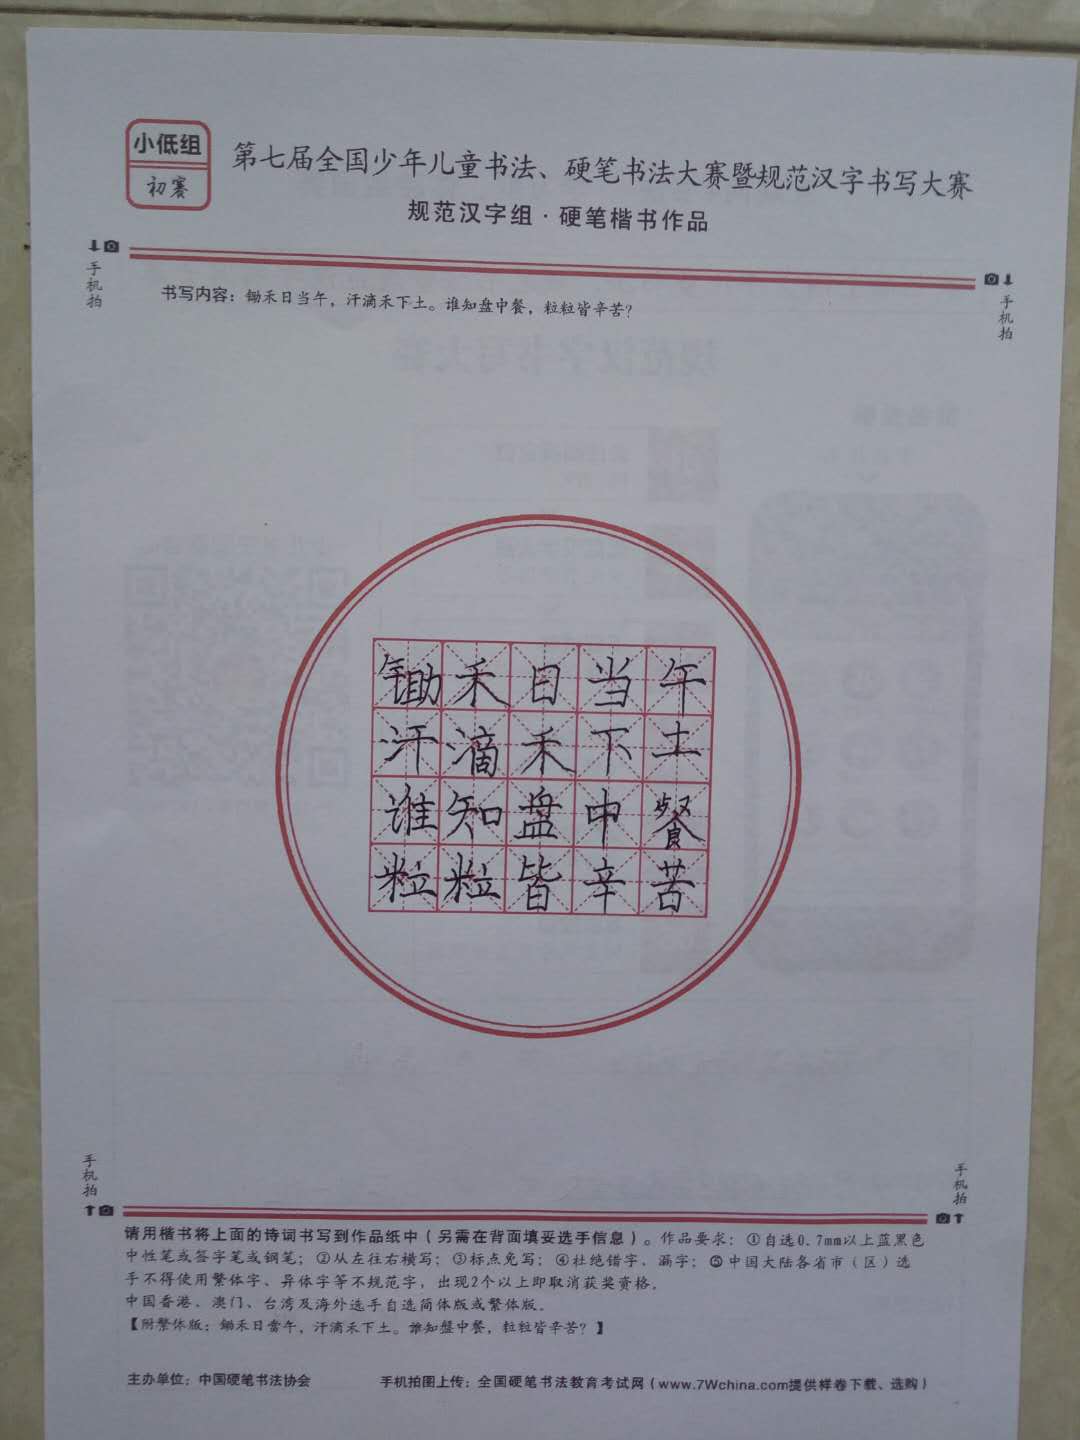 小低组
初赛
第七届全国少年儿童书法、硬笔书法大赛暨规范汉字书写大赛
规范汉字组·硬笔楷书作品
手机拍
手机拍
书写内容：锄禾日当午，汗滴禾下土。谁知盘中餐，粒粒皆辛苦？
锄禾日当午
汗滴禾下土
谁知盘中餐
粒粒皆辛苦
手机拍
手机拍
请用楷书将上面的诗词书写到作品纸中（另需在背面填妥选手信息）。作品要求：①自选0.7mm以上蓝黑色
中性笔或签字笔或钢笔；②从左往右横写；③标点免写；④杜绝错字、漏字；⑤中国大陆各省市（区）选
手不得使用繁体字、异体字等不规范字，出现2个以上即取消获奖资格。
中国香港、澳门、台湾及海外选手自选简体版或繁体版。
【附繁体版：鋤禾日當午，汗滴禾下土。誰知盤中餐，粒粒皆辛苦？】
主办单位：中国硬笔书法协会
手机拍图上传：全国硬笔书法教育考试网（www.7Wchina.com提供样卷下载、选购）